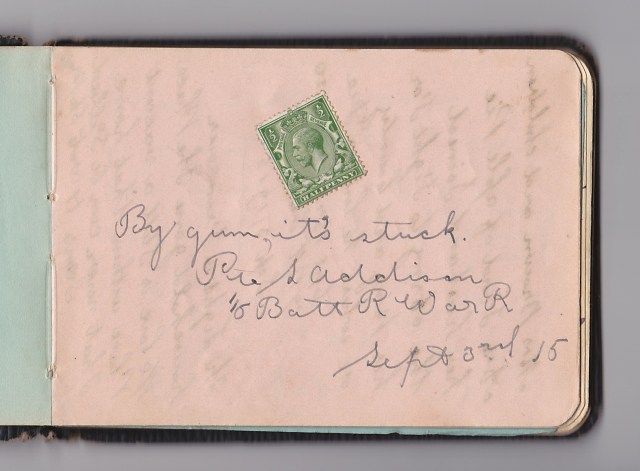 ½ ½
HALFPENNY
By gum, it's stuck.
Pte L Addison
1/8 Batt R War R
Sept 3rd 15